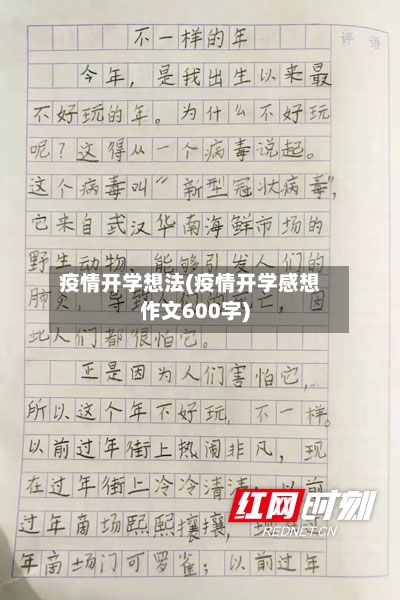 不一样的年
评语
今年，是我出生以来最
不好玩的年。为什么不好玩
呢？这得从一个病毒说起。
这个病毒叫“新型冠状病毒”，
它来自武汉华南海鲜市场的
野生动物，能够引发人们的
疫情开学想法(疫情开学感想
作文600字)
肺炎，导致人们的死亡，因
此人们都很怕它。
正是因为人们害怕它，
所以这个年不好玩，不一样。
以前过年街上热闹非凡，现
在过年街上冷冷清清；以前
红网时刻
REDNET.CN
过年商场熙熙攘攘，
年商场门可罗雀；以前过年